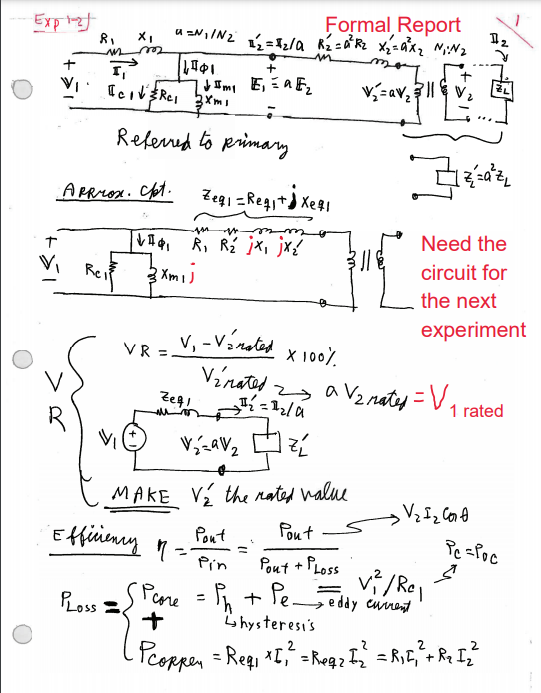 Exp 1-2)
Formal Report
1
R1 X1 a=N1/N2 I2'=I2/a R2'=a²R2 X2'=a²X2 N1:N2 I2
+ I1 Iφ1 + +
V1 Ic1 Rc1 Im1 Xm1 E1=aE2 V2'=aV2 V2 ZL
- - -
Referred to primary
ZL'=a²ZL
Approx. Ckt. Zeq1=Req1+jXeq1
+ Iφ1 R1 R2' jX1 jX2'
V1 Rc1 Xm1 j
-
Need the
circuit for
the next
experiment
VR = V1 - V2'rated / V2'rated X 100%
a V2 rated = V1 rated
VR
Zeq1 I2'=I2/a
V1 + - V2'=aV2 ZL'
MAKE V2' the rated value
Efficiency η = Pout / Pin = Pout / Pout + PLoss
V2 I2 Cosθ
PLoss = Pcore = Ph + Pe = V1²/Rc1
Pc=Poc
eddy current
hysteresis
+
Pcopper = Req1 x I1² = Req2 I2² = R1 I1² + R2 I2²